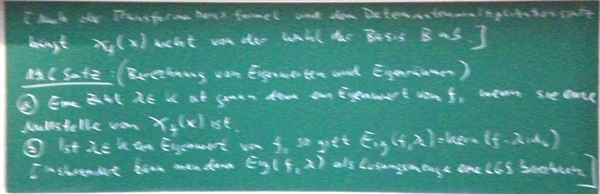 [Nach der Transformationsformel und dem Determinantenmultiplikationssatz
hängt χ_f(x) nicht von der Wahl der Basis B ab]
Satz: (Berechnung von Eigenwerten und Eigenräumen)
a) Eine Zahl λ∈K ist genau dann ein Eigenwert von f, wenn sie eine
Nullstelle von χ_f(x) ist.
b) Ist λ∈K ein Eigenwert von f, so gilt Eig(f,λ)=kern(f-λ·id)
[Insbesondere kann man dann Eig(f,λ) als Lösungsmenge eines LGS berechnen]